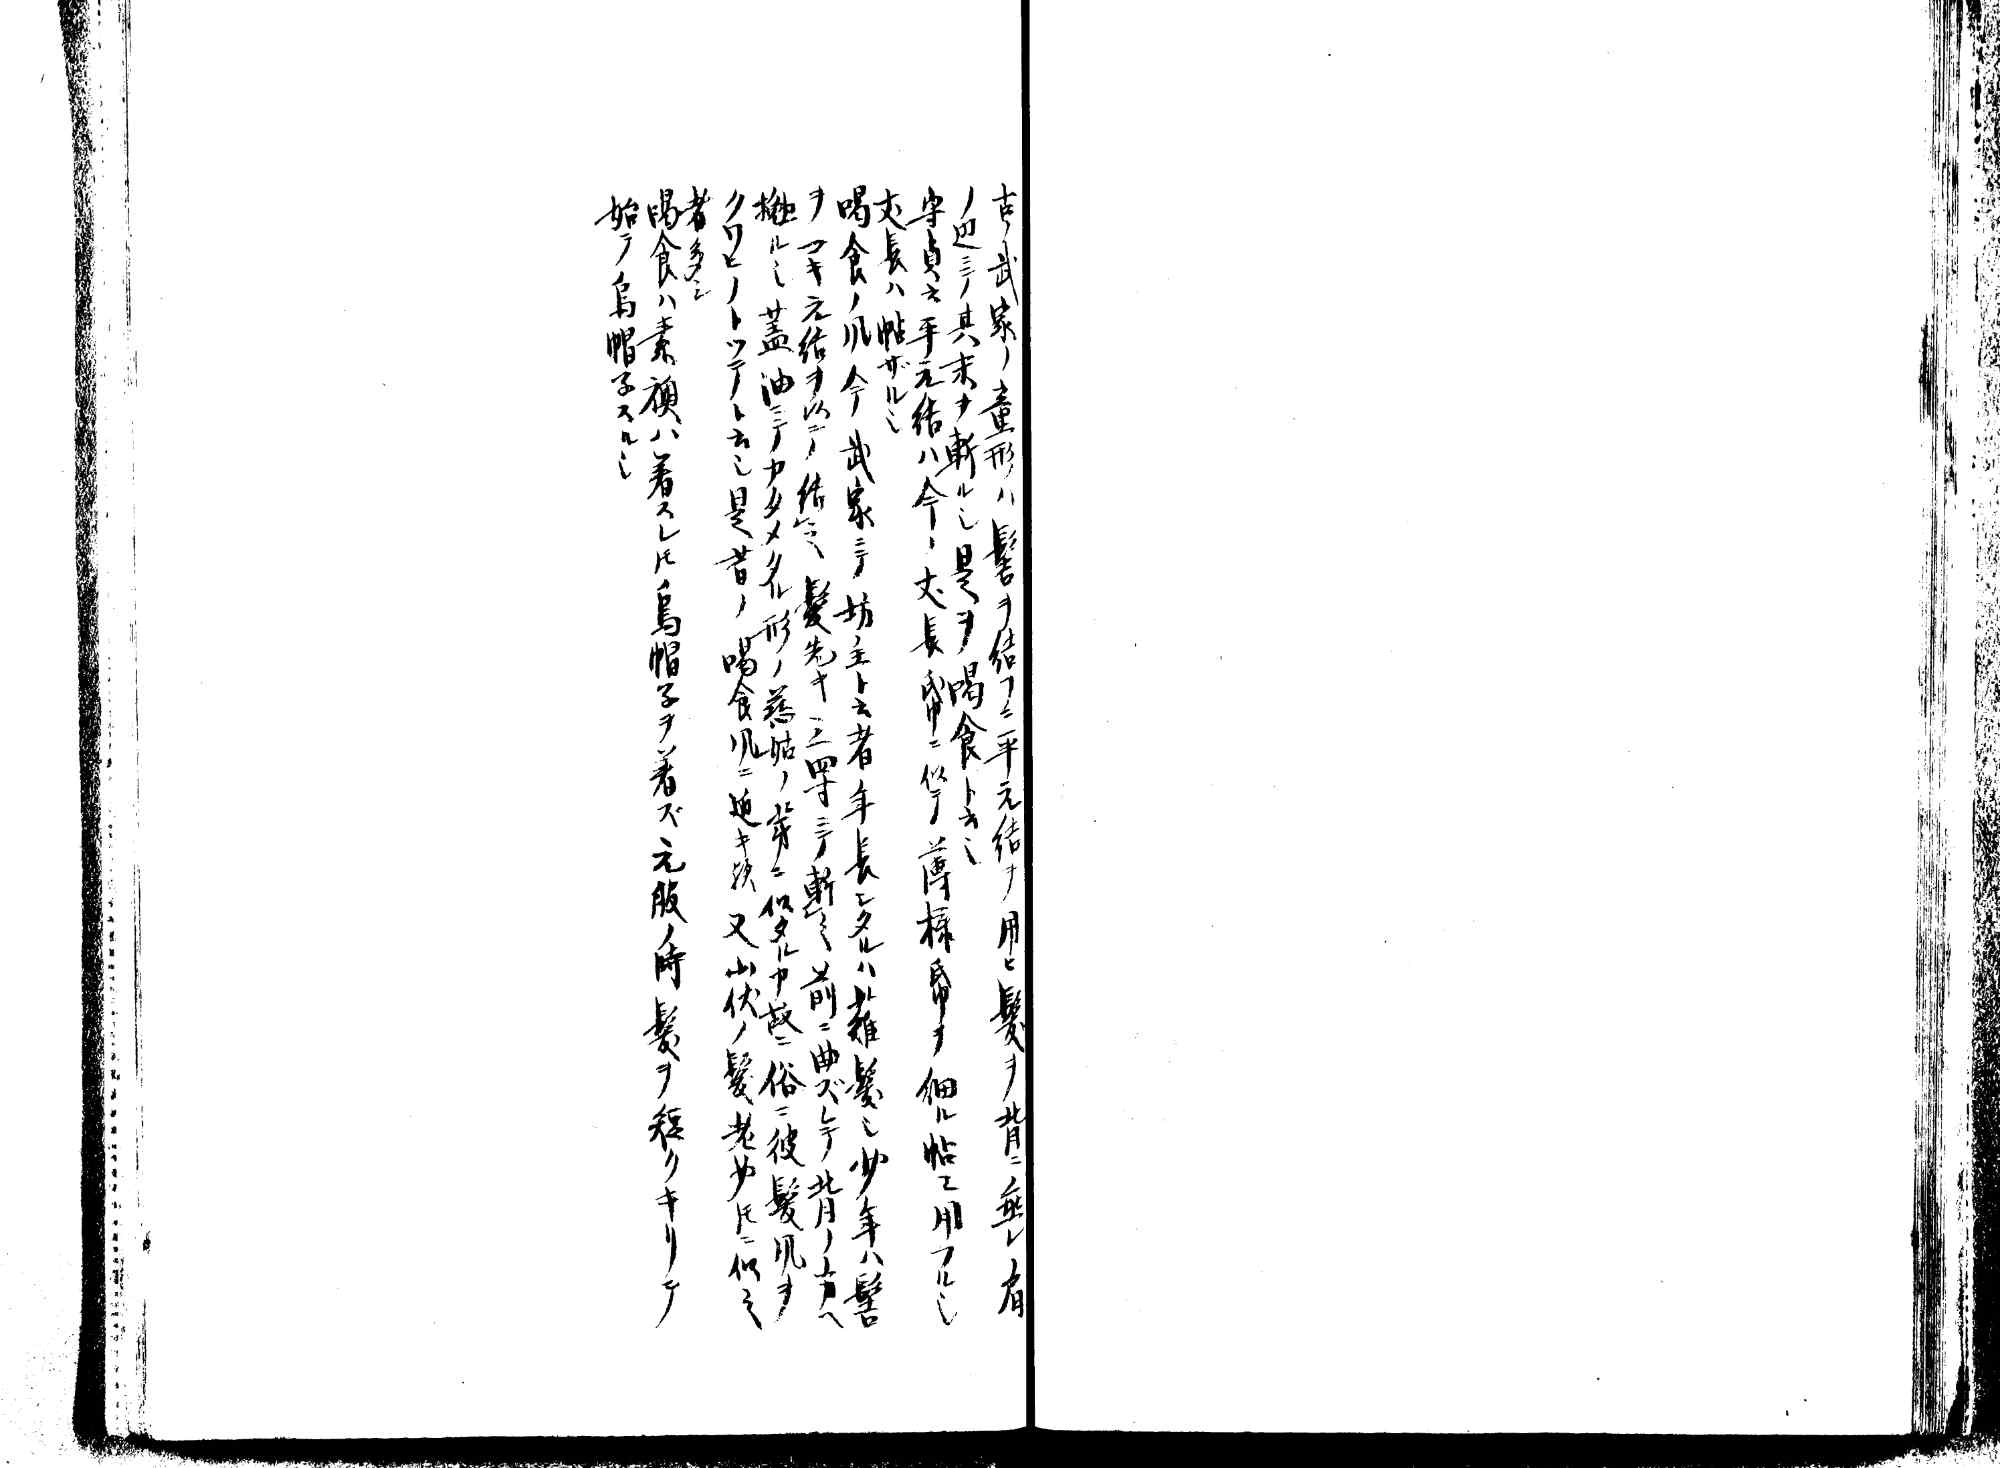 古武家ノ童形ハ髻ヲ結フニ平元結ヲ用ヒ髪ヲ背ニ垂レ肩
ノ辺ニテ其末ヲ斬ル也是ヲ喝食ト云也
守貞云平元結ハ今ト丈長帋ニ似テ薄様帋ヲ細ル帖テ用フル也
丈長ハ帖ザル也
喝食ノ風今武家ニテ坊主ト云者年長シタルハ薙髪シ少年ハ髻
ヲマキ元結ヲ以テ結ヒ髪先キ三四寸ニテ斬リ前ニ曲ズシテ背ノ方ヘ
ルシ蓋油ニテカタメタル形ノ慈姑ノ芽ニ似タルカ故ニ俗ニ彼髪風ヲ
クワヒノトツテト云也是昔ノ喝食風ニ近キ歟又山伏ノ髪老少トモニ似之
者多シ
喝食ハ素襖ハ着スレトモ烏帽子ヲ着ズ元服ノ時髪ヲ短クキリテ
始テ烏帽子スル也